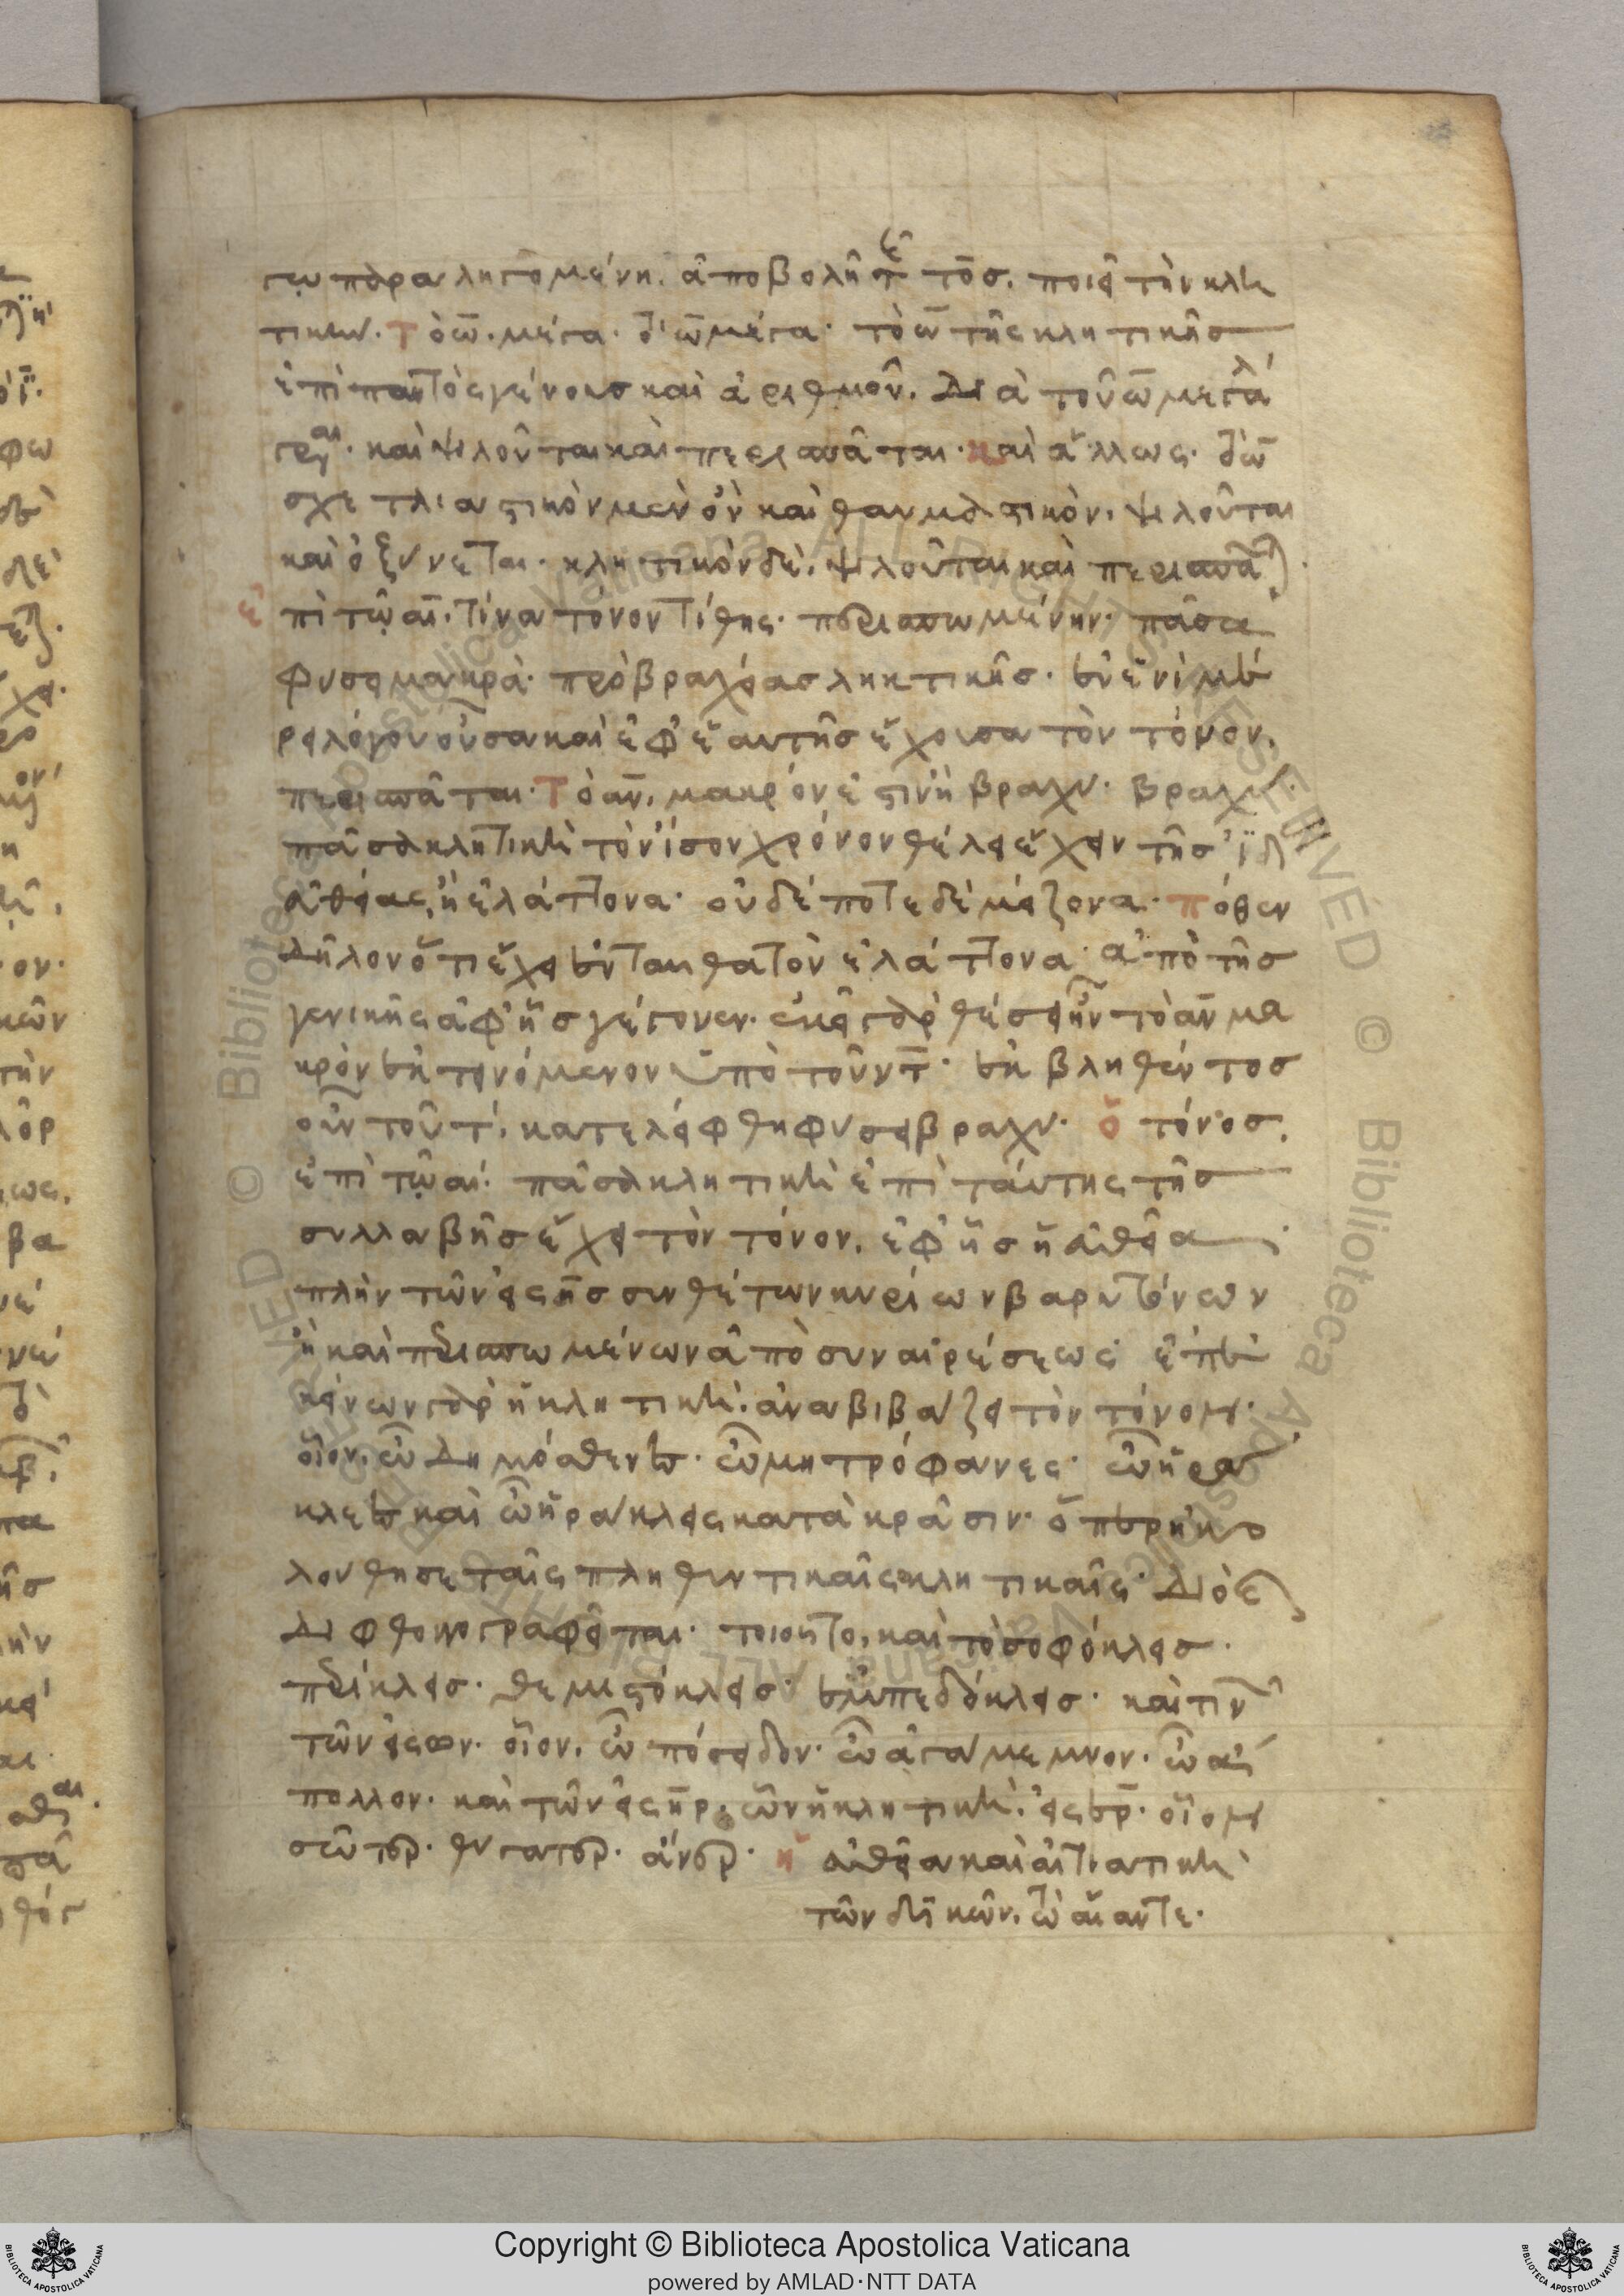 τῳ παραληγομένη. ἀποβολῆ τῆ τοῦ σ. ποιεῖ τὴν κλη
τικήν. Τὸ ω. μέγα. δι' ω μέγα. τὸ ω τῆς κλητικῆς
ἐπὶ παντὸς γένους καὶ ἀριθμοῦ. διὰ τοῦ ω μεγάλ
γρ. καὶ ψιλοῦται καὶ περισπᾶται. καὶ ἄλλως. τὸ ω
σχετλιαστικὸν μὲν ὂν καὶ θαυμαστικὸν. ψιλοῦται
καὶ ὀξύνεται. κλητικὸν δὲ. ψιλοῦται καὶ περισπᾶται.
ἐπὶ τῷ αι. τίνα τόνον τίθης. περισπωμένην. πᾶσα
φύσει μακρὰ. πρὸ βραχείας ληκτικῆς. ἐν ἑνὶ μέ
ρει λόγου οὖσα καὶ ἐφ' ἑαυτῆς ἔχουσα τὸν τόνον.
περισπᾶται. Τὸ αν. μακρόν ἐστιν ἢ βραχύ. βραχύ.
πᾶσα κλητικὴ τὸν ἴσον χρόνον θέλει ἔχειν τῆς ἰδί
εὐθείας, ἢ ἐλάττονα. οὐδέποτε δὲ μείζονα. πόθεν
δῆλον ὅτι ἔχει ἐνταῦθα τὸν ἐλάττονα. ἀπὸ τῆς
γενικῆς ἀφ' ἧς γέγονεν. ἐκεῖ γὰρ θέσει ἦν τὸ αν μα
κρὸν ἐκτεινόμενον ὑπὸ τοῦ ντ. ἐκβληθέντος
οὖν τοῦ τ. κατελείφθη φύσει βραχύ. ὁ τόνος.
ἐπὶ τῷ αι. πᾶσα κλητικὴ ἐπὶ ταύτης τῆς
συλλαβῆς ἔχει τὸν τόνον. ἐφ' ἧς ἡ εὐθεῖα
πλὴν τῶν εἰς ης συνθέτων κυρίων βαρυτόνων
ἢ καὶ περισπωμένων ἀπὸ συναιρέσεως. ἐπ' ἐ
κείνων γὰρ ἡ κλητικὴ. ἀναβιβάζει τὸν τόνον.
οἷον. ὦ Δημόσθενες. ὦ μητρόφανες. ὦ ἥρα
κλεες καὶ ὦ ἥρακλεις κατὰ κρᾶσιν. ὅπερ ἠκο
λούθησε ταῖς πληθυντικαῖς κλητικαῖς. Διὸ
διφθογγογραφεῖται. τοιοῦτο, καὶ τὸ σοφόκλεις.
περίκλεις. θεμιστόκλεις. ἐμπεδόκλεις. καί τιν
τῶν εἰς ων. οἷον. ὦ πόσειδον. ὦ ἀγάμεμνον. ὦ ἄ
πολλον. καὶ τῶν εἰς ηρ, ὧν ἡ κλητικὴ. εἰς ερ. οἷον
σῶτερ. θύγατερ. ἄνερ. ἡ εὐθεῖα καὶ αἰτιατικὴ
τῶν δυϊκῶν. τὼ αἴαντε.
Copyright © Biblioteca Apostolica Vaticana
powered by AMLAD·NTT DATA